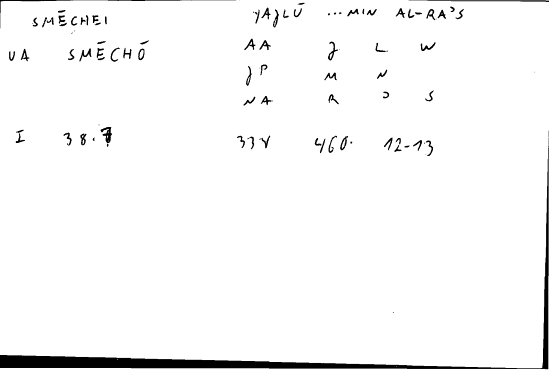 SMĒCHEI YAJLŪ ...MIN AL-RA'S
UA SMĒCHŌ AA J L W
JP M N
NA R ' S
I 38.7 33V 460. 12-13